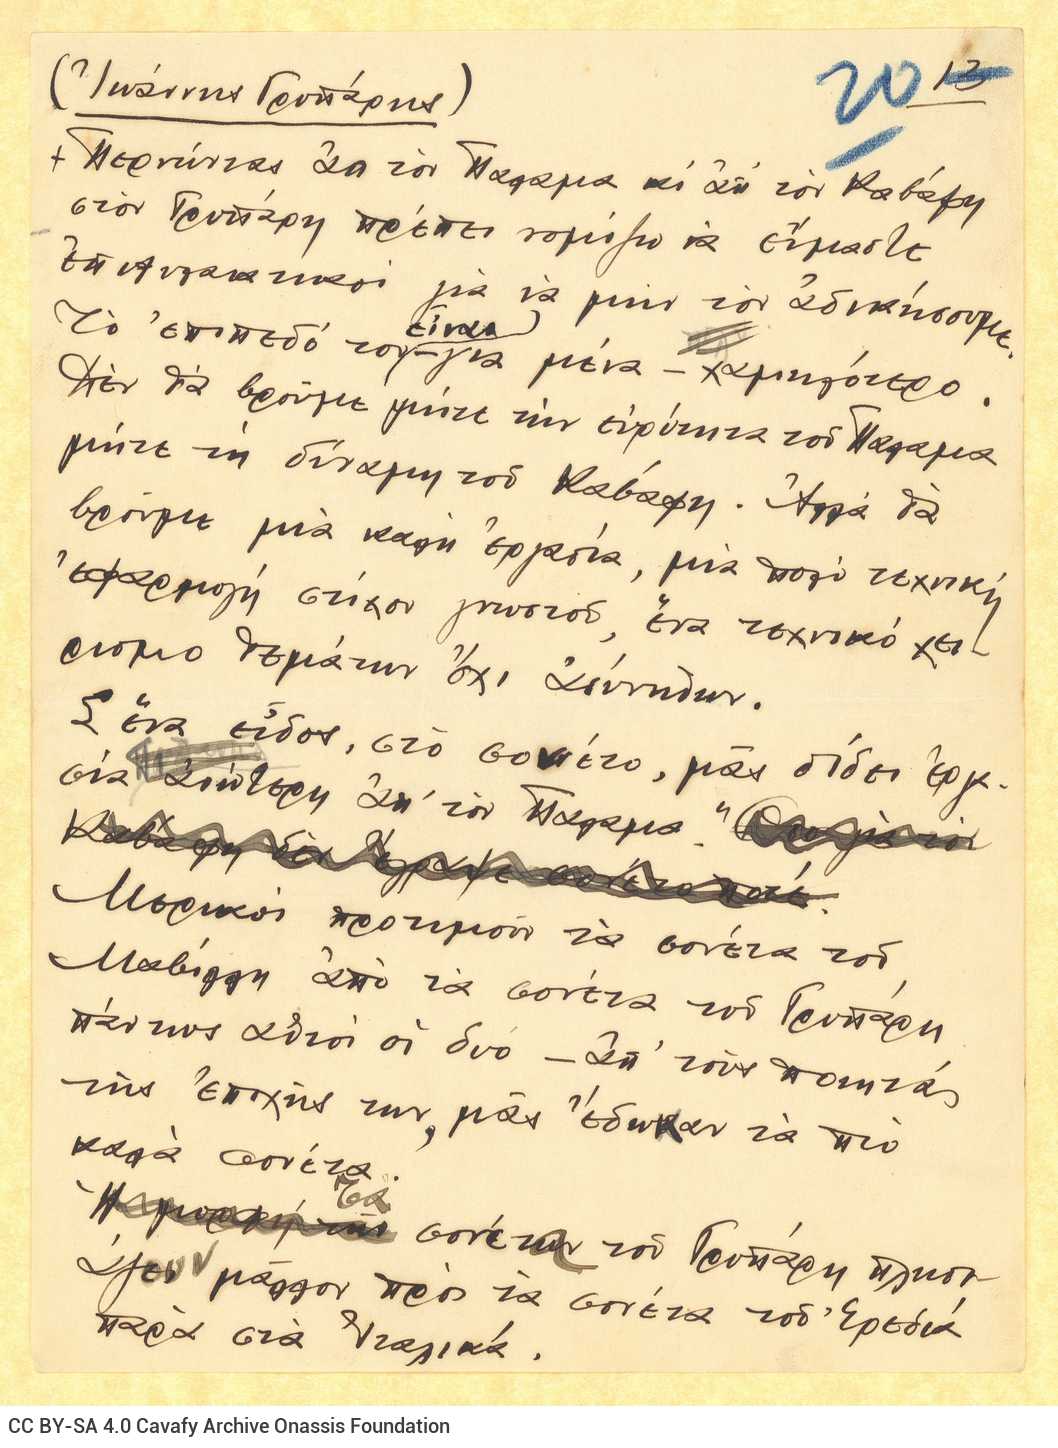 20 13
(Ἰωάννης Γρυπάρης)
+ Περνώντας ἀπ τὸν Παλαμᾶ κι ἀπ' τὸν Καβάφη
στὸν Γρυπάρη πρέπει νομίζω νὰ εἴμαστε
ἐπιφυλακτικοὶ γιὰ νὰ μὴν τὸν ἀδικήσουμε.
Τὸ ἐπίπεδό του – εἶναι γιὰ μένα – χαμηλότερο.
Δὲν θὰ βροῦμε μήτε τὴν εὐρύτητα τοῦ Παλαμᾶ
μήτε τὴ δύναμη τοῦ Καβάφη. Ἀλλὰ θὰ
βροῦμε μιὰ καλὴ ἐργασία, μιὰ πολὺ τεχνικὴ
ἐφαρμογὴ στίχου γνωστοῦ, ἕνα τεχνικό χει-
ρισμὸ θεμάτων ὄχι ἀσύνηθων.
Σ' ἕνα εἶδος, στὸ σονέτο, μᾶς δίδει ἐργα-
σία ἀνώτερη ἀπ' τὸν Παλαμᾶ. Ὅσο γιὰ τὸν
Καβάφη δὲν ἔγραψε σονέτο ποτέ.
Μερικοὶ προτιμοῦν τὰ σονέτα τοῦ
Μαβίλλη ἀπὸ τὰ σονέτα τοῦ Γρυπάρη
πάντως αὐτοὶ οἱ δυὸ – ἀπ' τοὺς ποιητάς
τῆς ἐποχῆς των, μᾶς ἔδωκαν τὰ πιὸ
καλὰ σονέτα.
Ἡ μορφὴ τῆς Τὰ σονέτα τοῦ Γρυπάρη πλησι-
άζουν μᾶλλον πρὸς τὰ σονέτα τοῦ Ἐρεδιά
παρὰ στὰ Ἰταλικά.
CC BY-SA 4.0 Cavafy Archive Onassis Foundation